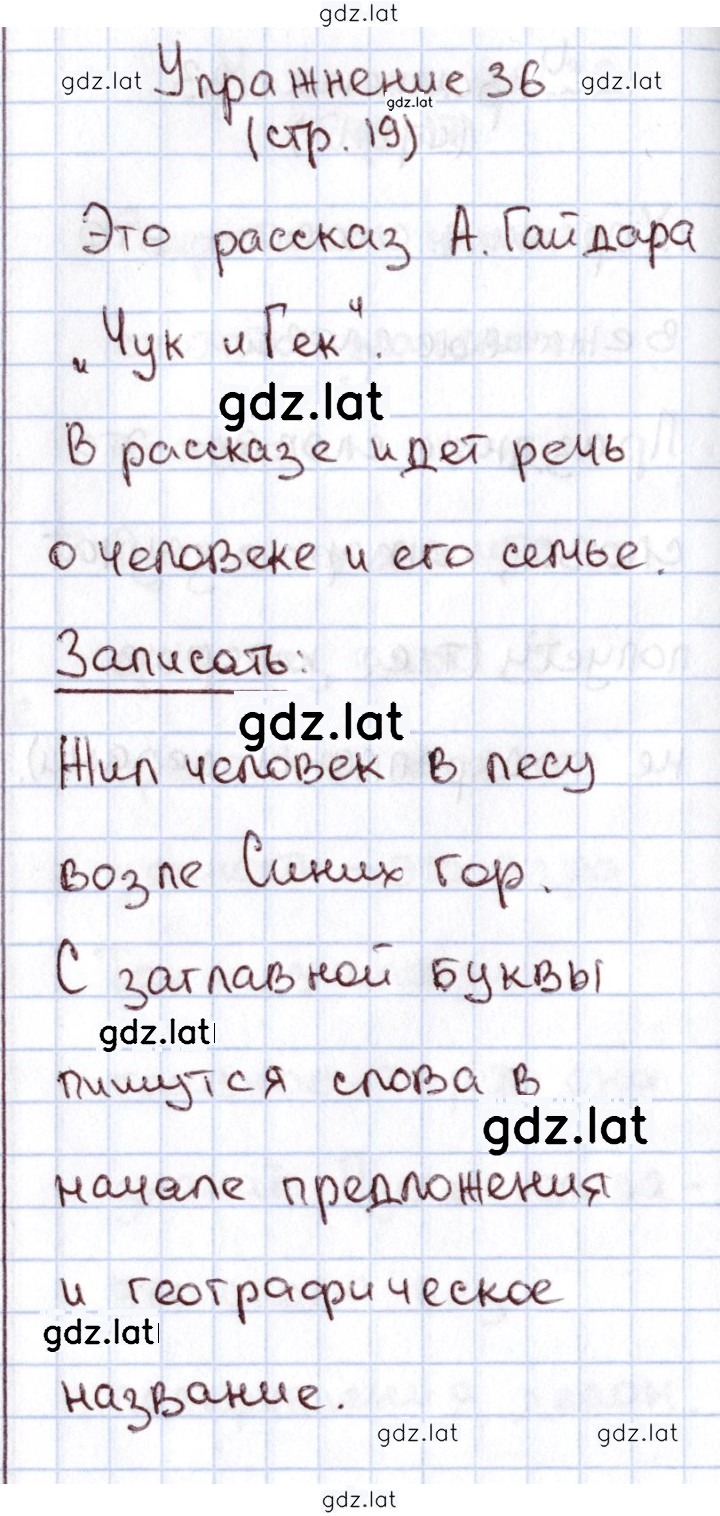 gdz.lat
gdz.lat Упражнение 36 gdz.lat
gdz.lat
(стр. 19)
Это рассказ А. Гайдара
„Чук и Гек“.
gdz.lat
В рассказе идет речь
о человеке и его семье.
Записать:
gdz.lat
Жил человек в лесу
возле Синих гор.
С заглавной буквы
gdz.lat
пишутся слова в
gdz.lat
начале предложения
и географическое
gdz.lat
название.
gdz.lat gdz.lat
gdz.lat